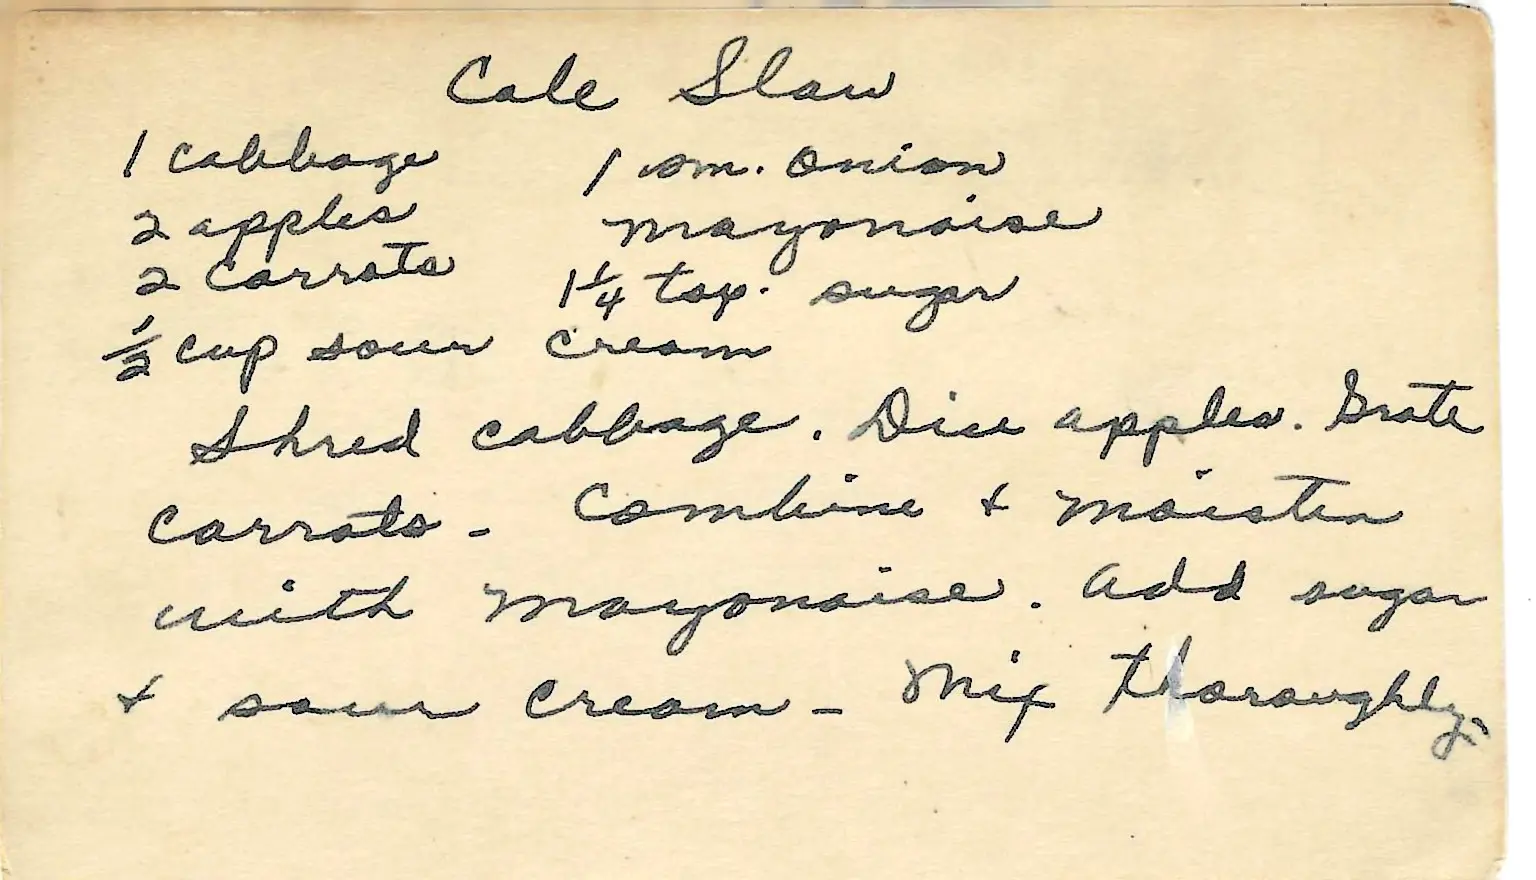 Cole Slaw
1 cabbage 1 sm. onion
2 apples mayonaise
2 carrots 1 1/4 tsp. sugar
1/2 cup sour cream
Shred cabbage. Dice apples. Grate
carrots - Combine + moisten
with mayonaise. Add sugar
+ sour cream - Mix thoroughly.